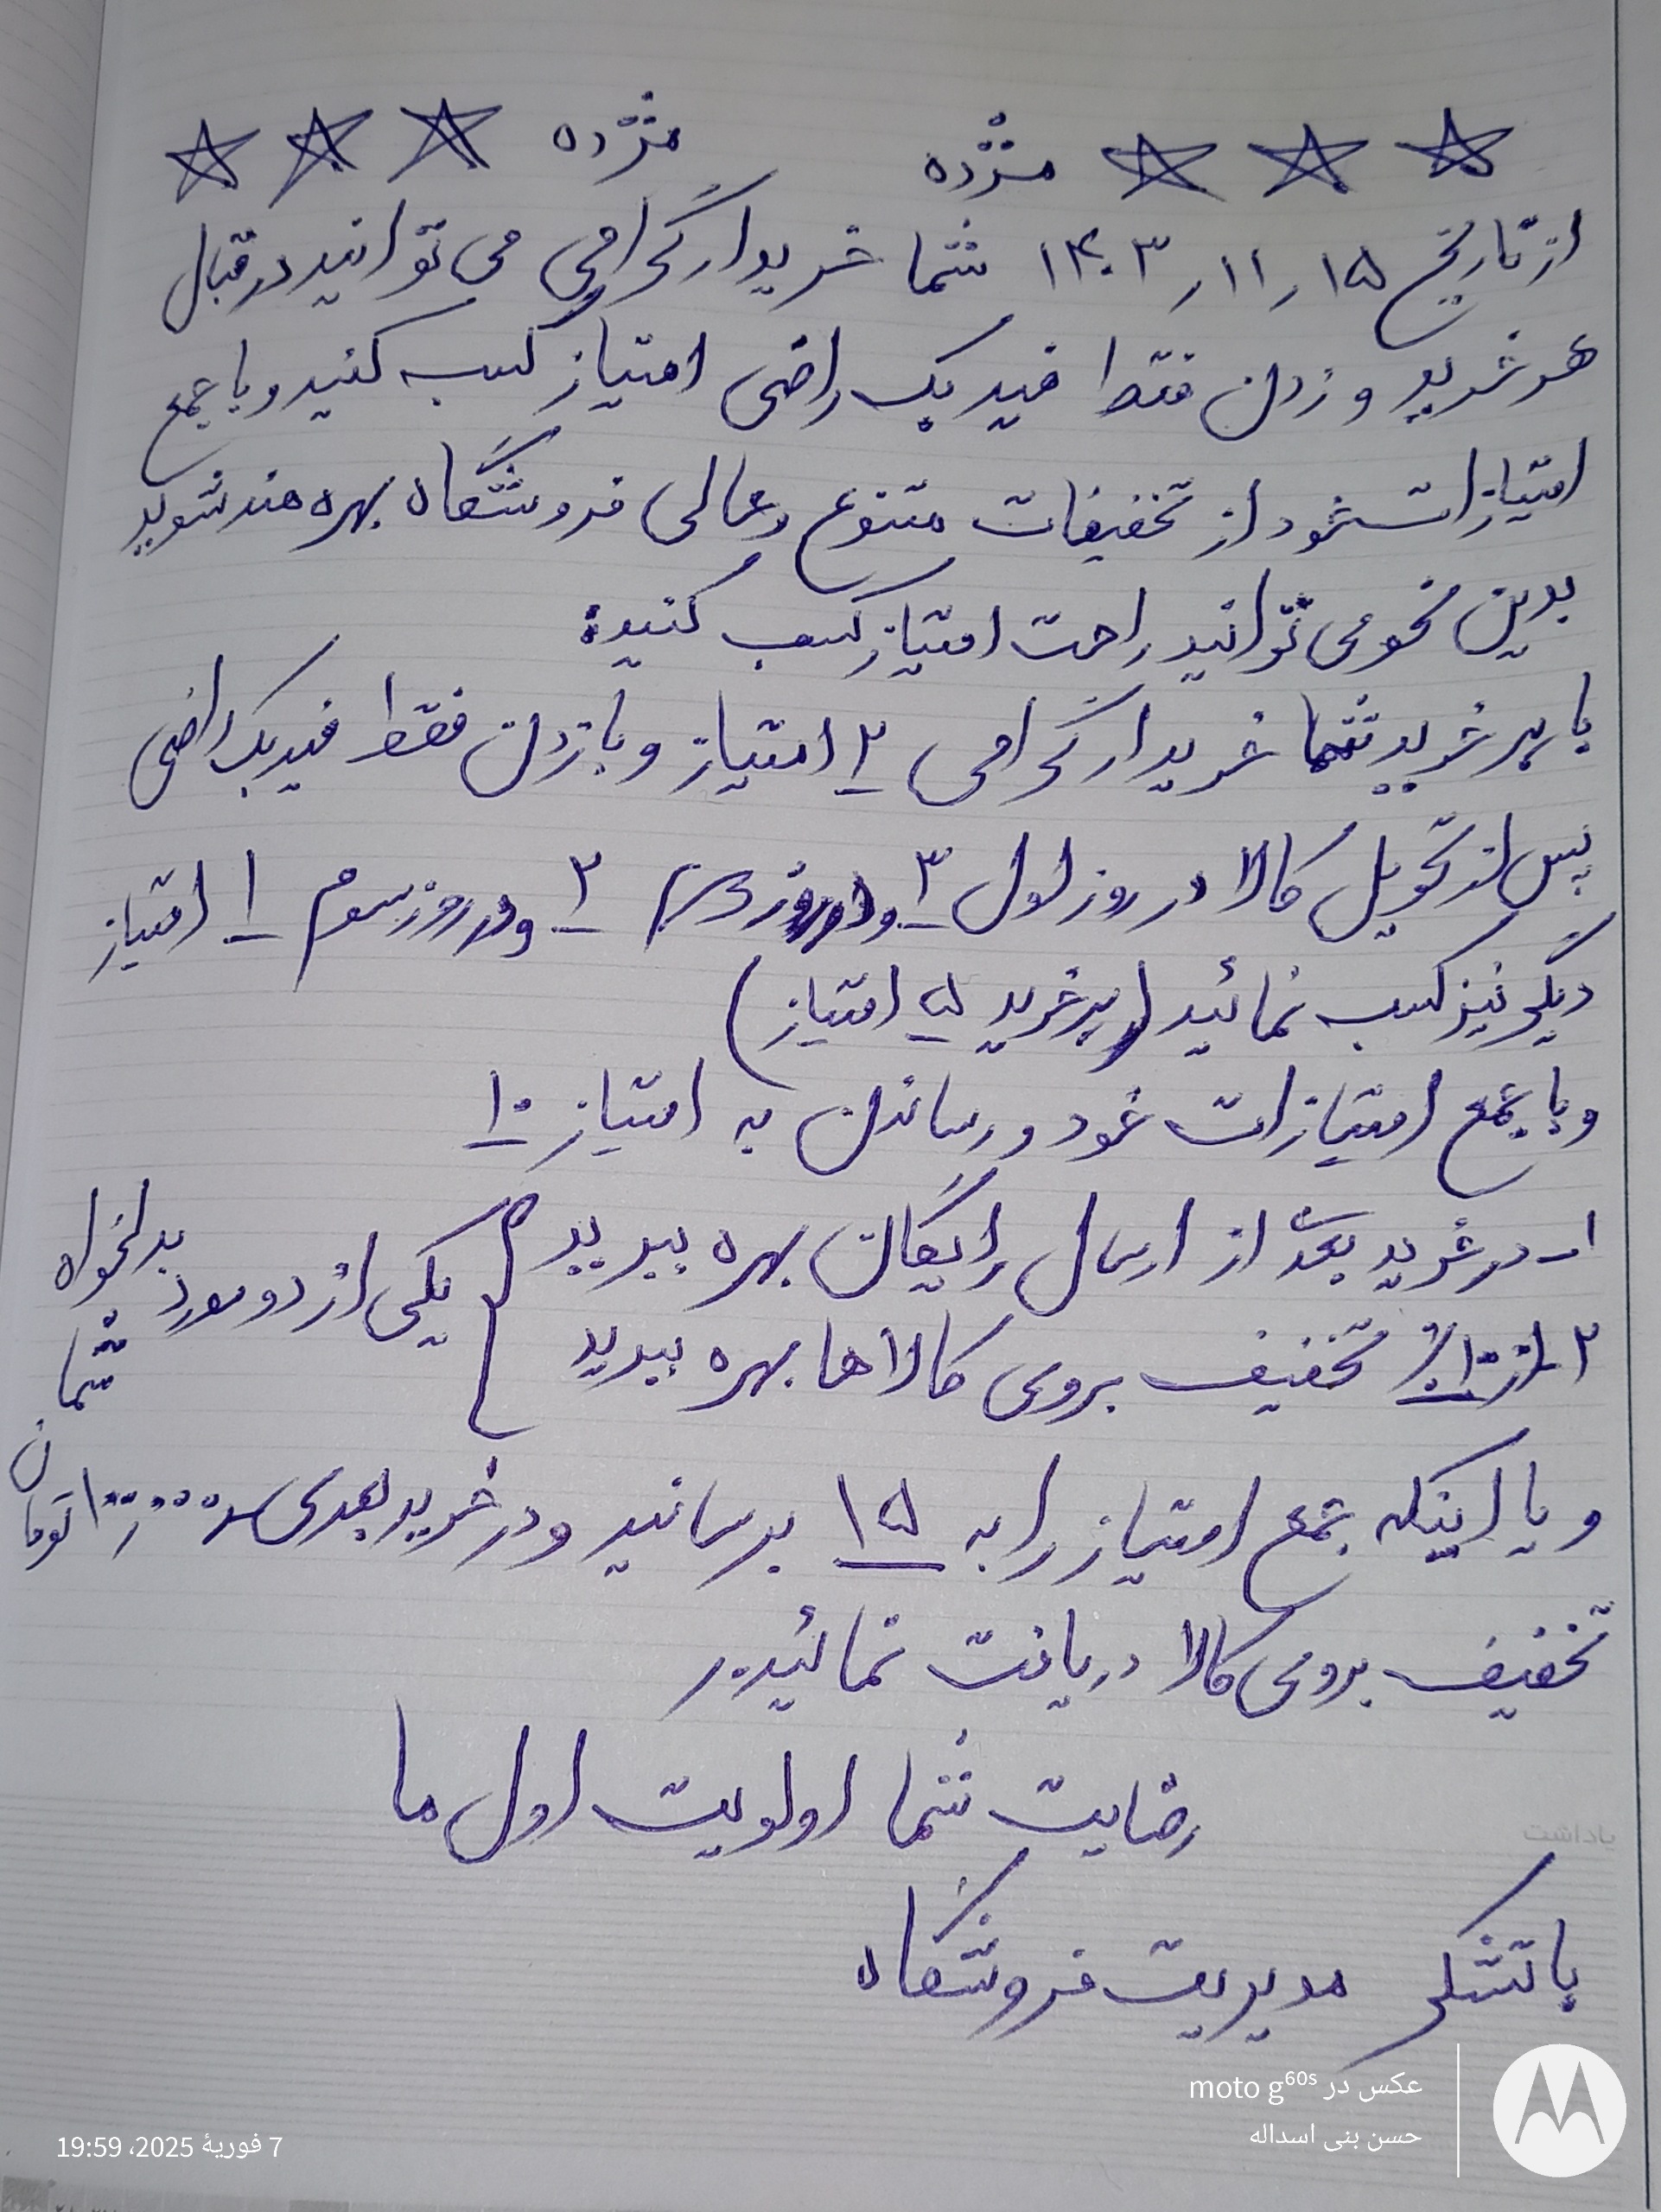 مژده مژده
از تاریخ ۱۴۰۳٫۱۱٫۱۵ شما خریدار گرامی می توانید در قبال
هر خرید و زدن فقط فیدبک راضی امتیاز کسب کنید و با جمع
امتیازات خود از تخفیفات متنوع و عالی فروشگاه بهره مند شوید
بدین نحو می توانید راحت امتیاز کسب کنید:
با هر خرید شما خریدار گرامی ۲ امتیاز و با زدن فقط فیدبک راضی
پس از تحویل کالا در روز اول ۳ و در روز دوم ۲ و در روز سوم ۱ امتیاز
دیگر نیز کسب نمائید (هر خرید ۵ امتیاز)
و با جمع امتیازات خود و رساندن به امتیاز ۱۰
۱- در خرید بعد از ارسال رایگان بهره ببرید
۲- از ۱۰٪ تخفیف بروی کالاها بهره ببرید
یکی از دو مورد بدلخواه
شما
و یا اینکه جمع امتیاز را به ۱۵ برسانید و در خرید بعدی ۱۰۰٫۰۰۰ تومان
تخفیف بروی کالا دریافت نمائید.
رضایت شما اولویت اول ما
با تشکر مدیریت فروشگاه
یاداشت
عکس در moto g60s
حسن بنی اسداله
7 فوریهٔ 2025، 19:59